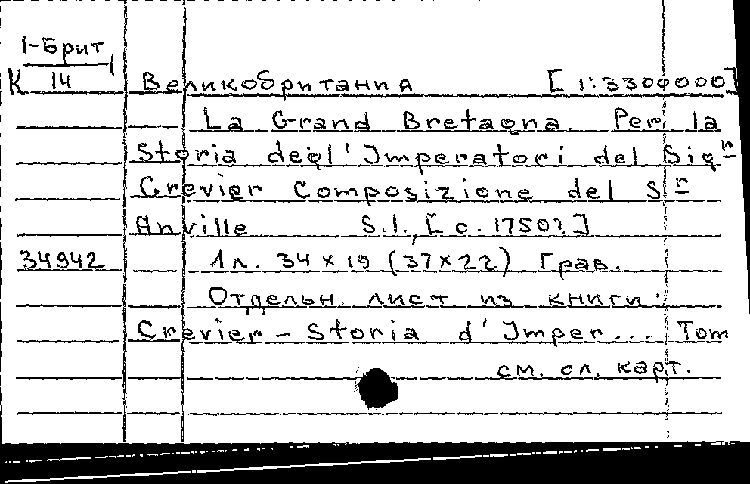 1-Брит
К 14
Великобритания [1:3300000]
La Grand Bretagna. Per la
Storia degl'Imperatori del Sig<sup>r</sup>
Crevier Composizione del S<sup>r</sup>
Anville S.l., [c. 1750?]
34942 1 л. 34 x 19 (37 x 22) Грав.
Отдельн. лист из книги:
Crevier - Storia d'Imper... Tom
см. сл. карт.